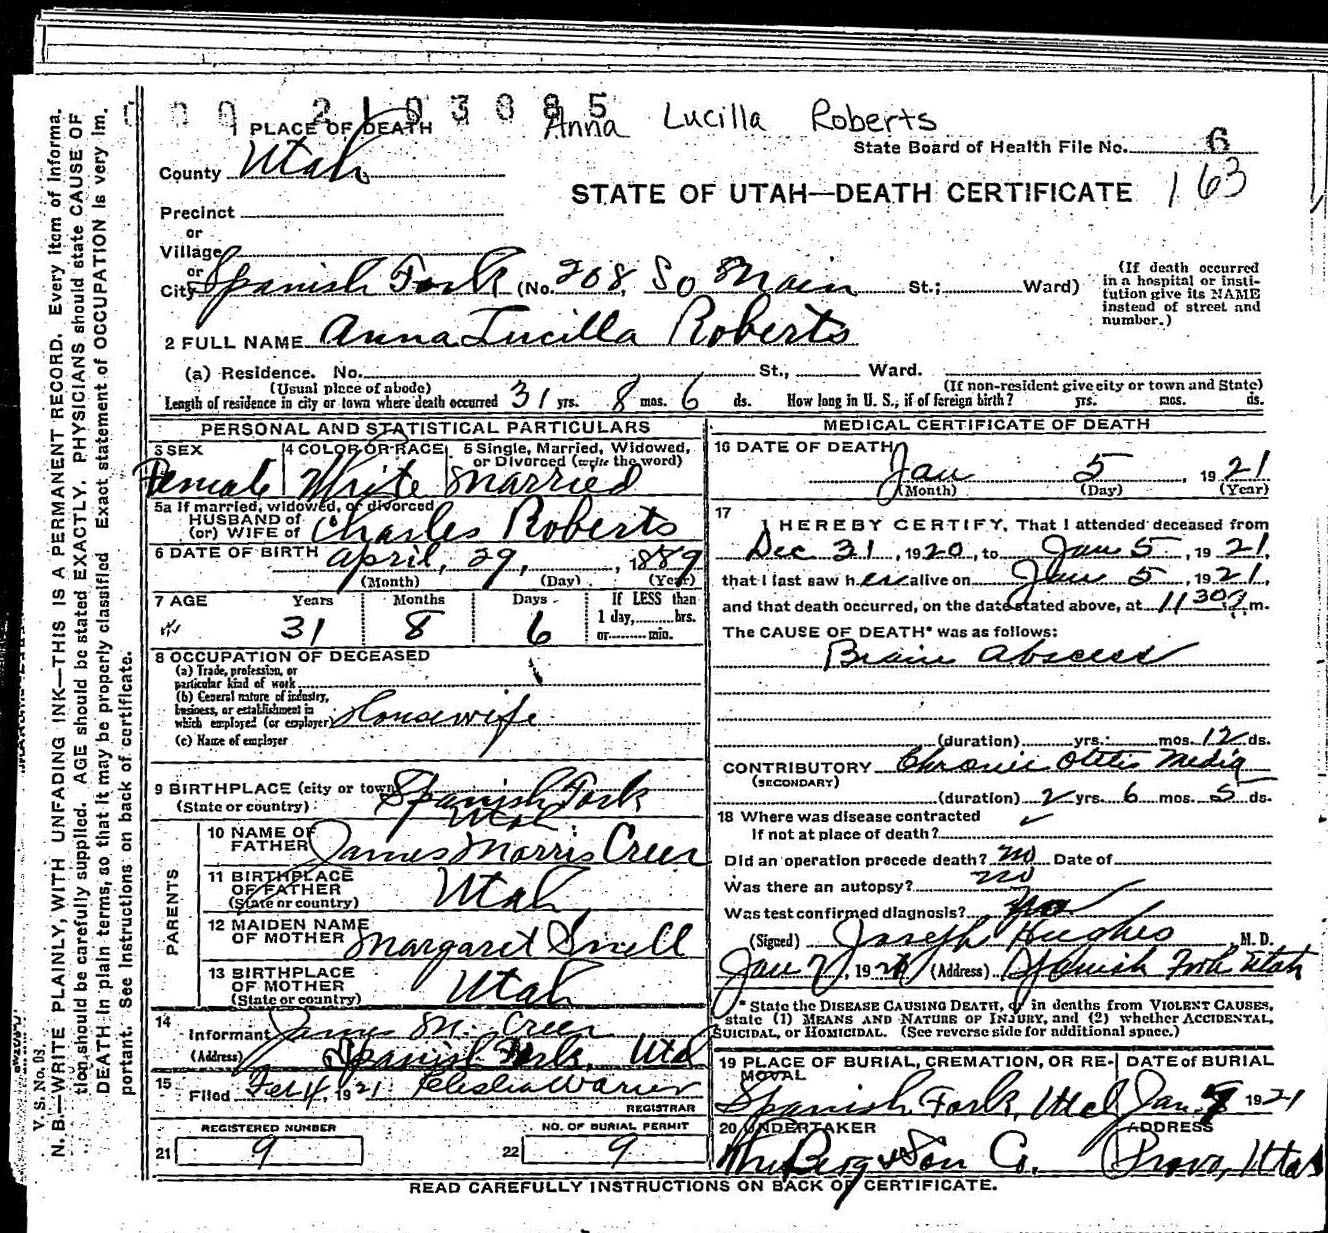 2103085
Anna Lucilla Roberts
1 PLACE OF DEATH
State Board of Health File No. 6
County Utah
STATE OF UTAH—DEATH CERTIFICATE 163
Precinct
or
Village
or
City Spanish Fork (No. 208, So Main St.; Ward)
(If death occurred in a hospital or insti-
tution give its NAME
instead of street and
number.)
2 FULL NAME Anna Lucilla Roberts
(a) Residence. No. St., Ward.
(Usual place of abode) (If non-resident give city or town and State)
Length of residence in city or town where death occurred 31 yrs. 8 mos. 6 ds. How long in U. S., if of foreign birth? yrs. mos. ds.
PERSONAL AND STATISTICAL PARTICULARS
3 SEX
Female
4 COLOR OR RACE
White
5 Single, Married, Widowed,
or Divorced (write the word)
Married
5a If married, widowed, or divorced
HUSBAND of
(or) WIFE of Charles Roberts
6 DATE OF BIRTH April, 29, 1889
(Month) (Day) (Year)
7 AGE Years Months Days If LESS than
1 day, hrs.
31 8 6 or min.
8 OCCUPATION OF DECEASED
(a) Trade, profession, or
particular kind of work
(b) General nature of industry,
business, or establishment in
which employed (or employer) Housewife
(c) Name of employer
9 BIRTHPLACE (city or town) Spanish Fork
(State or country) Utah
PARENTS
10 NAME OF
FATHER James Morris Creer
11 BIRTHPLACE
OF FATHER Utah
(State or country)
12 MAIDEN NAME
OF MOTHER Margaret Snell
13 BIRTHPLACE
OF MOTHER Utah
(State or country)
14
Informant James M. Creer
(Address) Spanish Fork, Utah
15
Filed Feb 4, 1921 Celestia Warner
REGISTRAR
REGISTERED NUMBER
21 9
NO. OF BURIAL PERMIT
22 9
MEDICAL CERTIFICATE OF DEATH
16 DATE OF DEATH
Jan 5, 1921
(Month) (Day) (Year)
17
I HEREBY CERTIFY, That I attended deceased from
Dec 31, 1920, to Jan 5, 1921,
that I last saw her alive on Jan 5, 1921,
and that death occurred, on the date stated above, at 11 30 m.
The CAUSE OF DEATH* was as follows:
Brain Abscess
(duration) yrs. mos. 12 ds.
CONTRIBUTORY Chronic Otitis Media
(SECONDARY)
(duration) 2 yrs. 6 mos. 5 ds.
18 Where was disease contracted
if not at place of death?
Did an operation precede death? no Date of
Was there an autopsy? no
Was test confirmed diagnosis?
(Signed) Joseph Hughes M. D.
Jan 7, 1921 (Address) Spanish Fork Utah
* State the DISEASE CAUSING DEATH, or in deaths from VIOLENT CAUSES,
state (1) MEANS AND NATURE OF INJURY, and (2) whether ACCIDENTAL,
SUICIDAL, or HOMICIDAL. (See reverse side for additional space.)
19 PLACE OF BURIAL, CREMATION, OR RE-
MOVAL
Spanish Fork, Utah
DATE of BURIAL
Jan 1921
20 UNDERTAKER
Berg & Son Co.
ADDRESS
Provo, Utah
READ CAREFULLY INSTRUCTIONS ON BACK OF CERTIFICATE.
V. S. No.
N. B.—WRITE PLAINLY, WITH UNFADING INK—THIS IS A PERMANENT RECORD. Every item of informa-
tion should be carefully supplied. AGE should be stated EXACTLY. PHYSICIANS should state CAUSE OF
DEATH in plain terms, so that it may be properly classified. Exact statement of OCCUPATION is very im-
portant. See instructions on back of certificate.